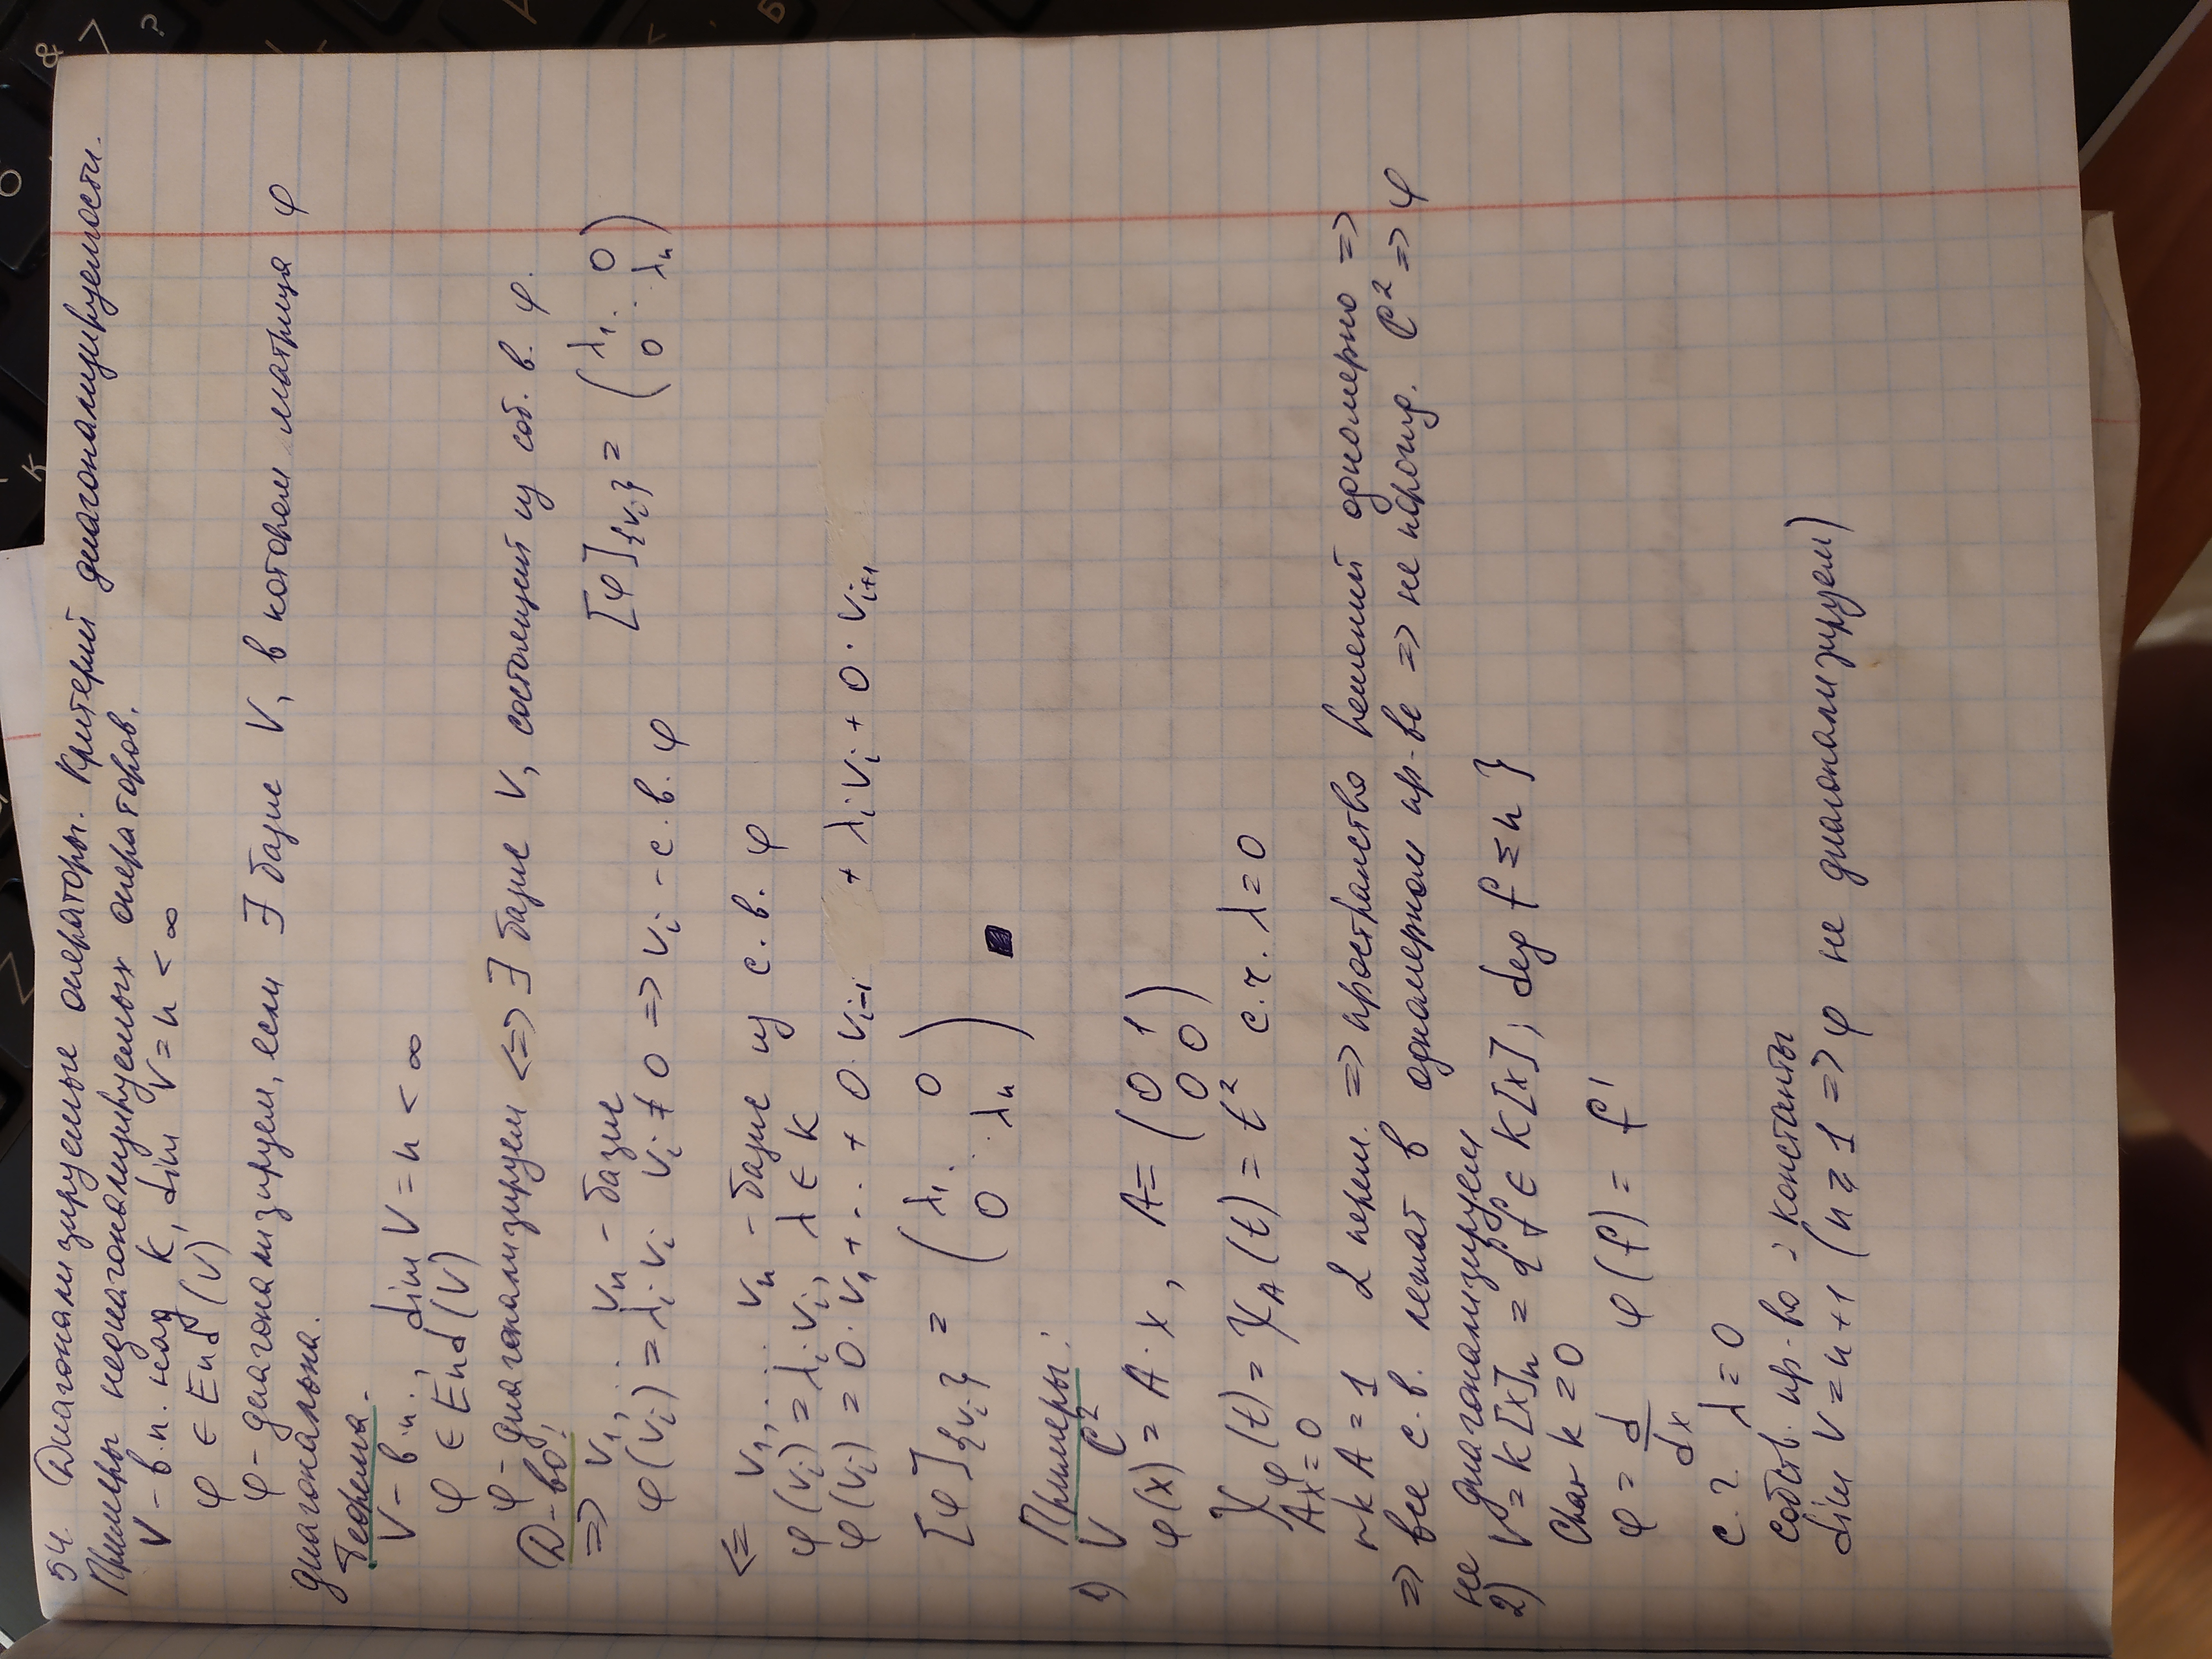 54. Диагонализируемые операторы. Критерий диагонализируемости.
Примеры недиагонализируемых операторов.
V - в.п. над K, dim V = n < ∞
φ ∈ End (V)
φ - диагонализируем, если ∃ базис V, в котором матрица φ
диагональна.
Теорема.
V - в.п., dim V = n < ∞
φ ∈ End (V)
φ - диагонализируем <=> ∃ базис V, состоящий из соб. в. φ.
Д-во:
=> v₁, ... vₙ - базис [φ]{vᵢ} = (λ₁ ... 0
0 λₙ)
φ(vᵢ) = λᵢ vᵢ vᵢ ≠ 0 => vᵢ - с.в. φ
<= v₁, ... vₙ - базис из с.в. φ
φ(vᵢ) = λᵢ vᵢ, λ ∈ K
φ(vᵢ) = 0·v₁ + ... + 0·vᵢ₋₁ + λᵢvᵢ + 0·vᵢ₊₁
[φ]{vᵢ} = (λ₁ ... 0
0 λₙ) ■
Примеры:
1) V C²
φ(x) = A·x, A = (0 1
0 0)
χφ(t) = χA(t) = t² с.ч. λ=0
Ax=0
rk A = 1 2 перем. => пространство решений одномерно =>
=> все с.в. лежат в одномерном пр-ве => не порожд. C² => φ
не диагонализируем
2) V = K[x]ₙ = {f ∈ K[x], deg f ≤ n}
Char K = 0
φ = d/dx φ(f) = f'
с.ч. λ=0
собств. пр-во = константы
dim V = n+1 (n ≥ 1 => φ не диагонализируем)
&
7
?
Б
К